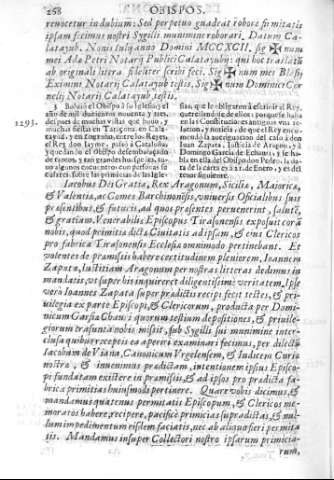 268 OBISPOS.
renocetur in dubium: Sed perpetuo gaudeat robore firmitatis
ipsam fecimus nostri Sygilli munimine roborari. Datum Ca-
latayub. Nonis Iulij anno Domini MCCXCII. Sig✠num
mei Ade Petri Notarij Publici Calatayubij: qui hoc traslatũ
ab originali litera fideliter scribi feci. Sig✠num mei Blasij
Eximini Notarij Calatayub testis, Sig✠num Dominici Cor-
nelij Notarij Calatayub testis.
1293.
3 Boluió el Obispo à su Iglesia y el
año de mil ducientos nouenta y tres,
despues de muchas vistas que huuo, y
muchas fiestas en Taraçona, en Cala-
tayud, y en Logroño, entre los Reyes,
el Rey don Iayme, passó à Cataluña
y que en el Obispo desembaraçado
de tantos, y tan grandes huespedes, tu-
uo algunos encuentros con personas se-
culares, sobre las primicias de las Igle-
sias, que le obligaron à escriuir al Rey,
querellandose de ellos: porque se halla
en la Constitucion antigua una re-
lacion, y noticia, de que el Rey enco-
mendó la aueriguacion del caso à don
Iuan Zapata, Iusticia de Aragon, y à
Domingo Garcia de Echauri, y se ha-
bla en ella del Obispo don Pedro, la da-
ta de la carta es à 21. de Enero, y es del
tenor siguiente.
Iacobus Dei Gratia, Rex Aragonum, Siciliæ, Maioricæ,
& Valentiæ, ac Comes Barchinonis, vniuersis Oficialibus suis
præsentibus, & futuris, ad quos præsentes peruenerint, salutẽ,
& gratiam. Venerabilis Episcopus Tirasonensis exposuit cora
nobis, quod primitia dictæ Ciuitatis ad ipsam, & eius Clericos
pro fabrica Tirasonensis Ecclesiæ omnimodo pertinebant. Et
volentes de præmissis habere certitudinem pleniorem, Ioannem
Zapata, Iustitiam Aragonum per nostras litteras dedimus in
mandatis, vt super his inquireret diligentissimè veritatem, Ipse
verò Ioannes Zapata super prædictis recipi fecit testes, & pri-
uilegia ex parte Episcopi, & Clericorum, producta per Domi-
nicum Garsia Chauri quorum testium depositiones, & priuile-
giorum trasunta nobis missit, sub Sygilli sui munimine inter-
clusa quibus receptis ea aperiri examinari fecimus, per dilectũ
Iacobum de Viana, Canonicum Vrgelensem, & Iudicem Curiæ
nostræ, & inuenimus prædictam, intentionem ipsius Episco-
pi fundatam existere in præmissis, & ad ipsos pro prædicta fa-
brica primitias huiusmodi pertinere. Quare vobis dicimus, &
mandamus quatenus permitatis Episcopum, & Clericos me-
moratos habere, recipere, pacificè primicias supradictas, & nul-
lum impedimentum eisdem faciatis, nec ab aliquo fieri permita-
tis. Mandamus insuper Collectori nostro ipsarum primicia-
rum,